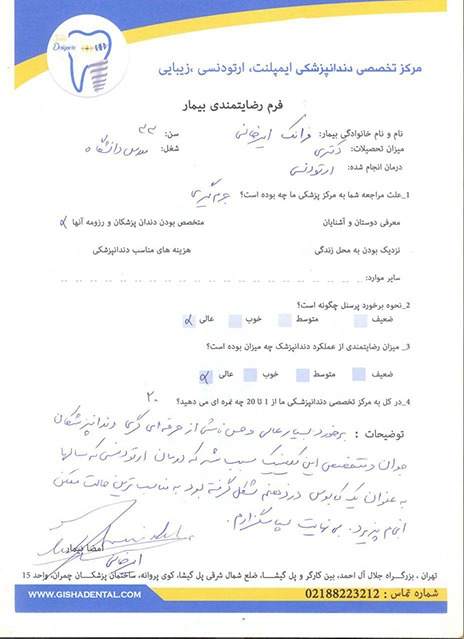 مرکز تخصصی دندانپزشکی ایمپلنت، ارتودنسی ،زیبایی
فرم رضایتمندی بیمار
نام و نام خانوادگی بیمار: فرانک ایرخانی سن: ۳۳
میزان تحصیلات: دکتری شغل: مدرس دانشگاه
درمان انجام شده: ارتودنسی
1_علت مراجعه شما به مرکز پزشکی ما چه بوده است؟ جرم گیری
معرفی دوستان و آشنایان متخصص بودن دندان پزشکان و رزومه آنها
نزدیک بودن به محل زندگی هزینه های مناسب دندانپزشکی
سایر موارد:
2_نحوه برخورد پرسنل چگونه است؟
ضعیف متوسط خوب عالی
3_ میزان رضایتمندی از عملکرد دندانپزشک چه میزان بوده است؟
ضعیف متوسط خوب عالی
4_در کل به مرکز تخصصی دندانپزشکی ما از 1 تا 20 چه نمره ای می دهید؟ ۲۰
توضیحات : برخورد بسیار عالی و حس ناشی از حرفه ای گری دندانپزشکان
جوان و متخصص این کلینیک سبب شد که درمان ارتودنسی که سالها
به عنوان یک کابوس در ذهنم شکل گرفته بود به مناسب ترین حالت ممکن
انجام پذیرد. بی نهایت سپاسگزارم.
امضا بیمار
ایرخانی
تهران ، بزرگراه جلال آل احمد، بین کارگر و پل گیشا، ضلع شمال شرقی پل گیشا، کوی پروانه، ساختمان پزشکان چمران، واحد 15
شماره تماس : 02188223212 WWW.GISHADENTAL.COM